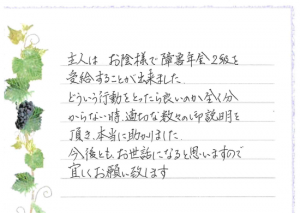 主人は お陰様で障害年金2級を
受給することが出来ました
どういう行動をとったら良いのか全く分
からない時、適切な数々の御説明を
頂き、本当に助かりました
今後とも、お世話になると思いますので
宜しくお願い致します